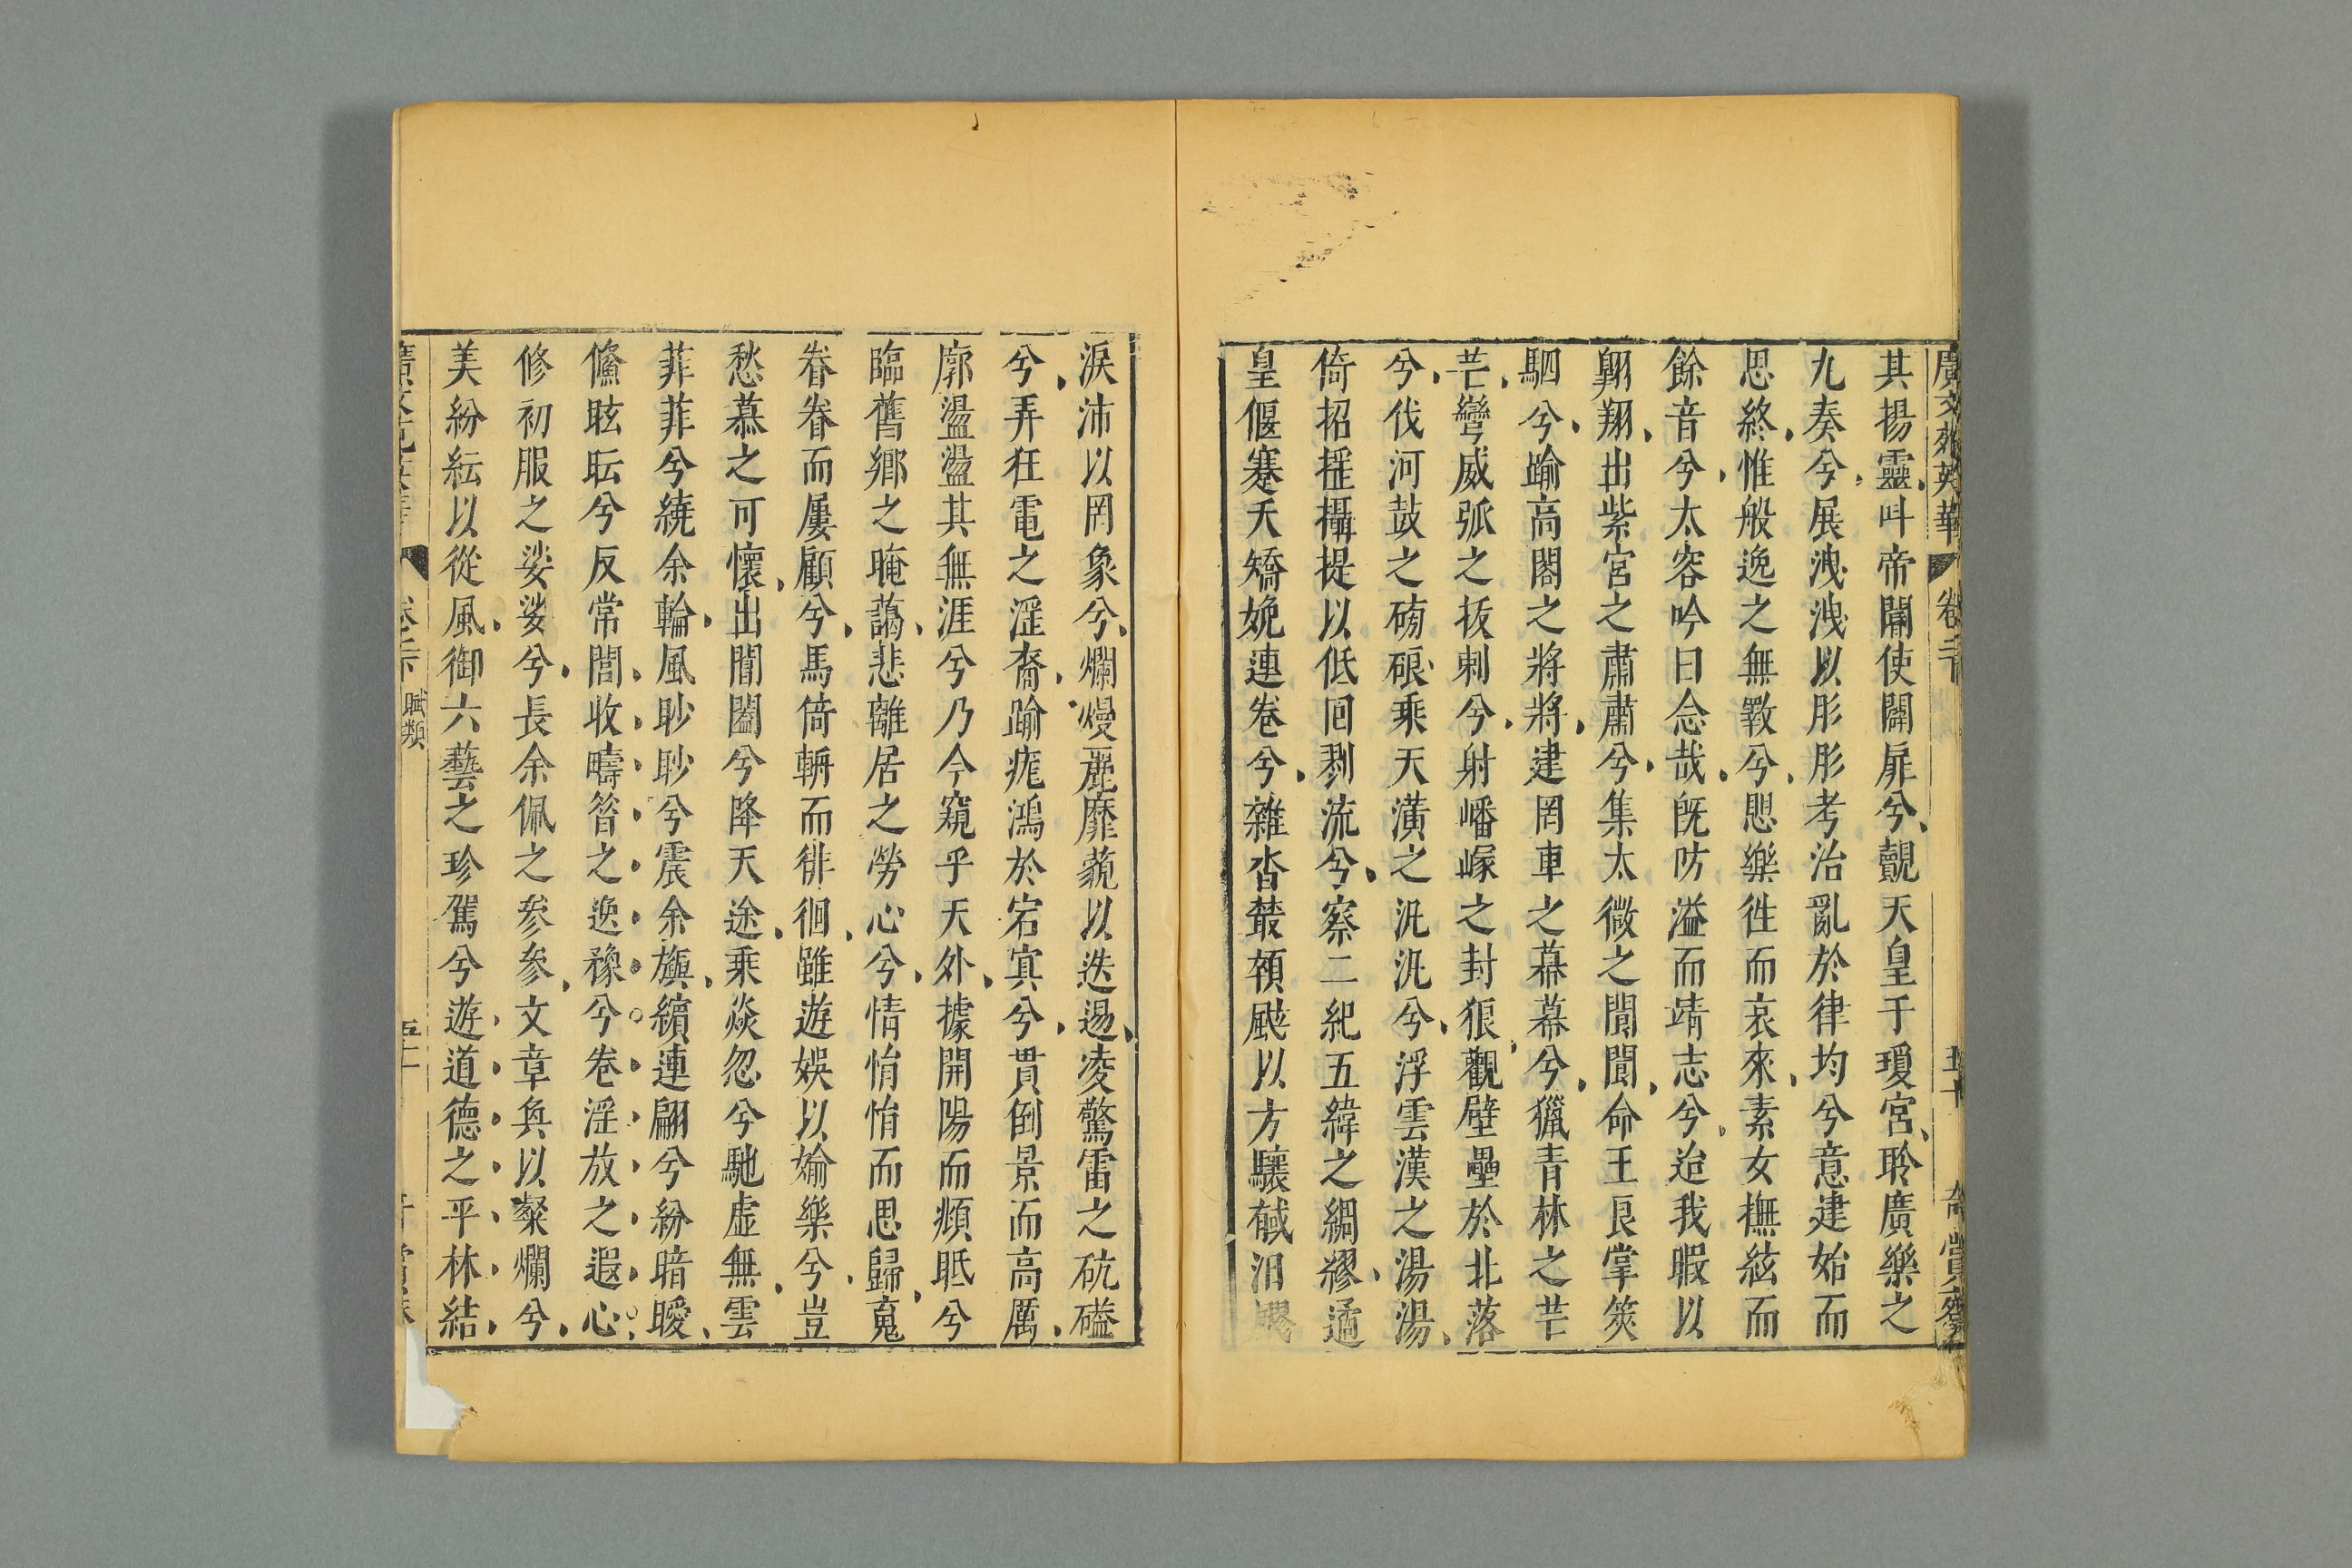 廣文苑英華 卷二十 五十 奇賞齋
其揚靈叫帝閽使闢扉兮覿天皇于瓊宮聆廣樂之
九奏兮展洩洩以肜肜考治亂於律均兮意建始而
思終惟般逸之無斁兮懼樂徃而哀來素女撫絃而
餘音兮太容吟曰念哉旣防溢而靖志兮迨我暇以
翺翔出紫宮之肅肅兮集太微之閬閬命王良掌筴
駟兮踰高閣之將將建罔車之幕幕兮獵青林之芒
芒彎威弧之拔剌兮射嶓嶓之封狼觀壁壘於北落
兮伐河鼓之磅硠乘天潢之汎汎兮浮雲漢之湯湯
倚招搖攝提以低佪剹流兮察二紀五緯之綢繆遹
皇偃蹇夭矯娩連卷兮雜沓叢顇颯以方驤戫汨飂
淚沛以罔象兮爛熳麗靡藐以迭逿凌驚雷之砊磕
兮弄狂電之淫裔踰痝鴻於宕冥兮貫倒景而高厲
廓盪盪其無涯兮乃今窺乎天外據開陽而頫眡兮
臨舊鄉之晻藹悲離居之勞心兮情悁悁而思歸䰟
眷眷而屢顧兮馬倚輈而徘徊雖遊娛以媮樂兮豈
愁慕之可懷出閶闔兮降天途乘焱忽兮馳虛無雲
菲菲兮繞余輪風眇眇兮震余旟繽連翩兮紛暗曖
儵眩眃兮反常閭收疇昝之逸豫兮卷淫放之遐心
修初服之娑娑兮長余佩之参参文章奐以粲爛兮
美紛紜以從風御六藝之珍駕兮遊道德之平林結
賦類